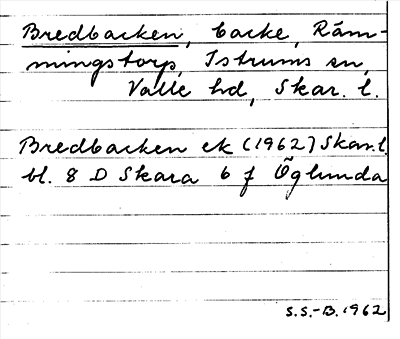 Bredbacken, backe, Räm-
mingstorp, Istrums sn,
Valle hd, Skar. l.
Bredbacken ek (1962) Skar. l.
bl. 8 D Skara 6 f Öglunda
S.S.-B. 1962